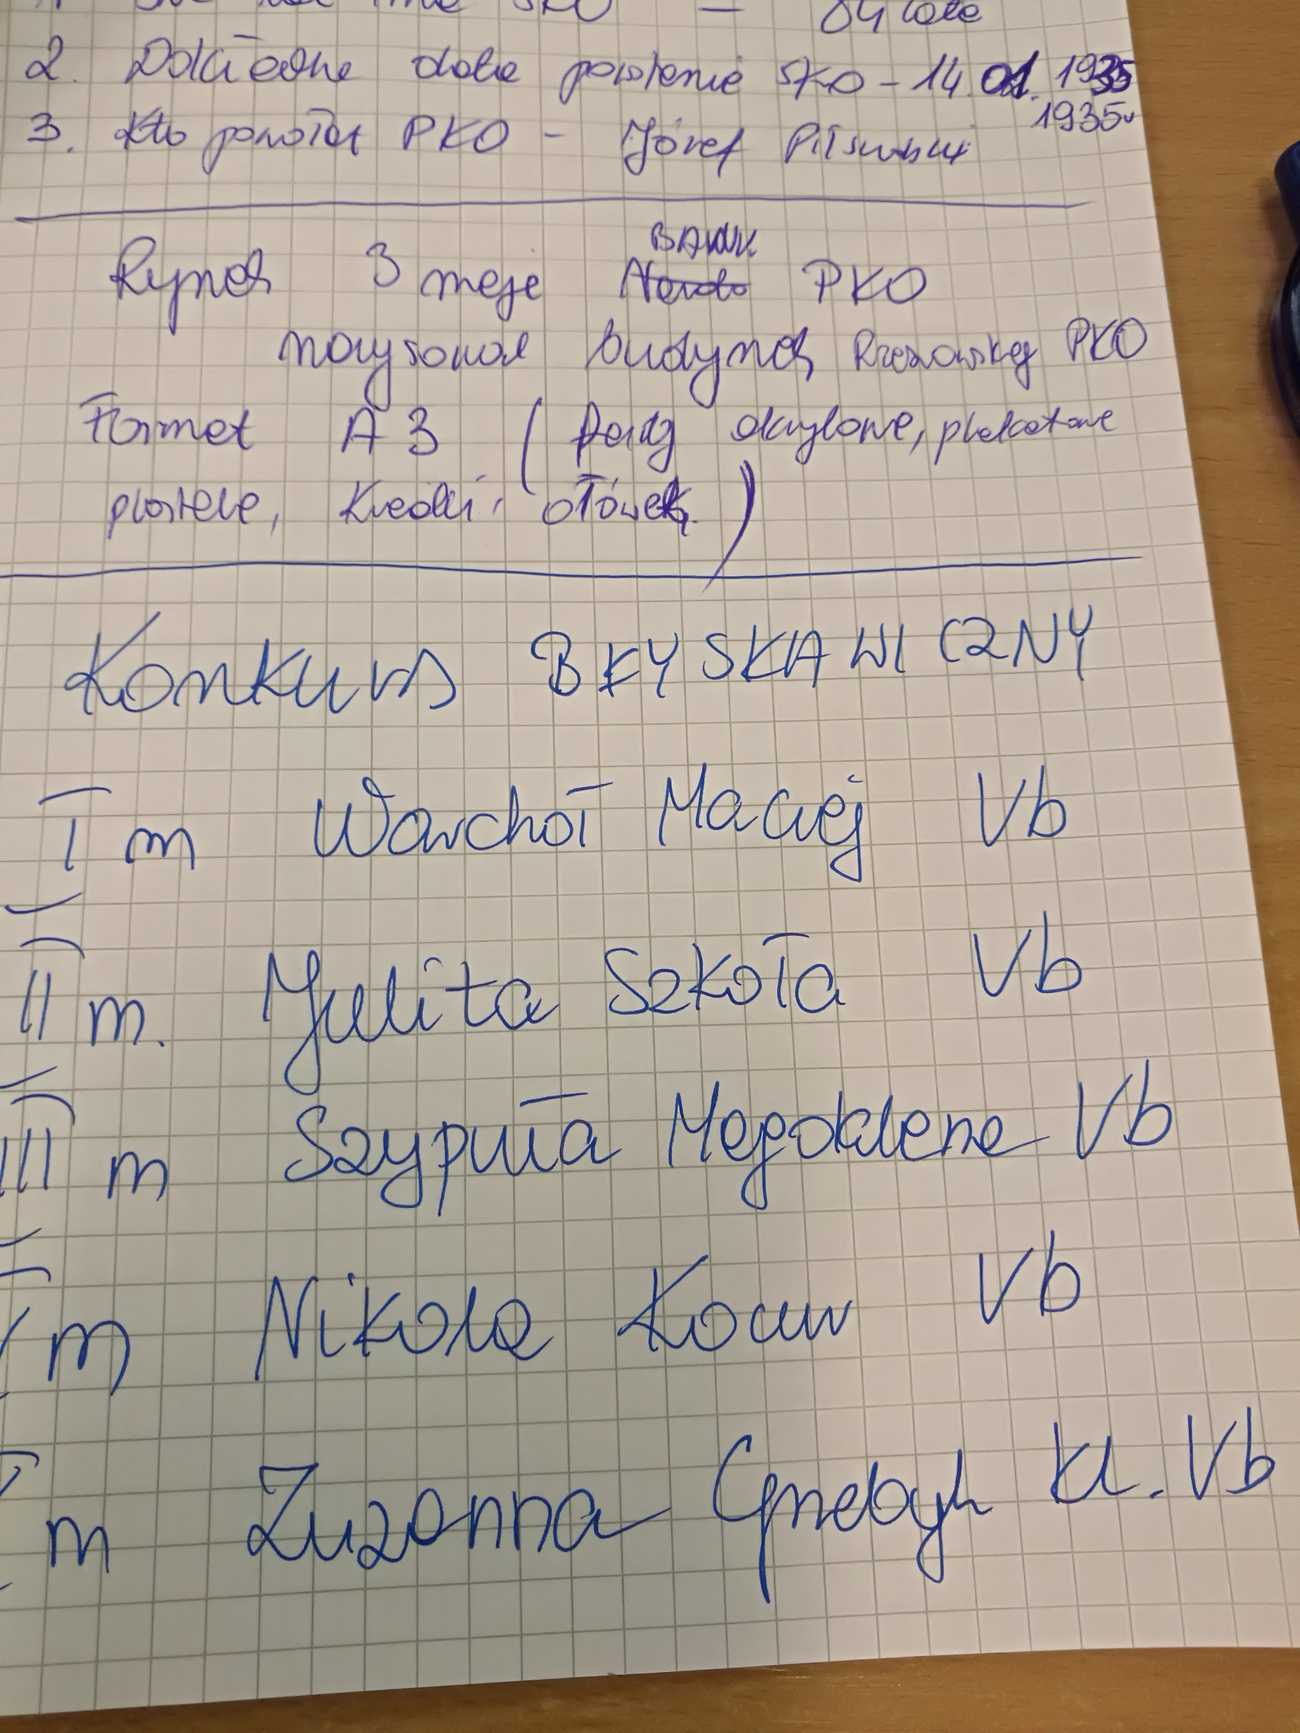 SKO — 84 lata
2. Dokładne data powstanie SKO - 14.01.1935
1935r
3. Kto powołał PKO - Józef Piłsudski
BANK
Rynek 3 maja PKO
narysować budynek Rzeszowskiej PKO
Format A3 (farby akrylowe, plakatowe
pastele, kredki, ołówek.)
Konkurs BŁYSKAWICZNY
I m Warchoł Maciej Vb
II m. Julita Szkoła Vb
III m Szypuła Magdalena Vb
m Nikola Vb
m Zuzanna kl. Vb